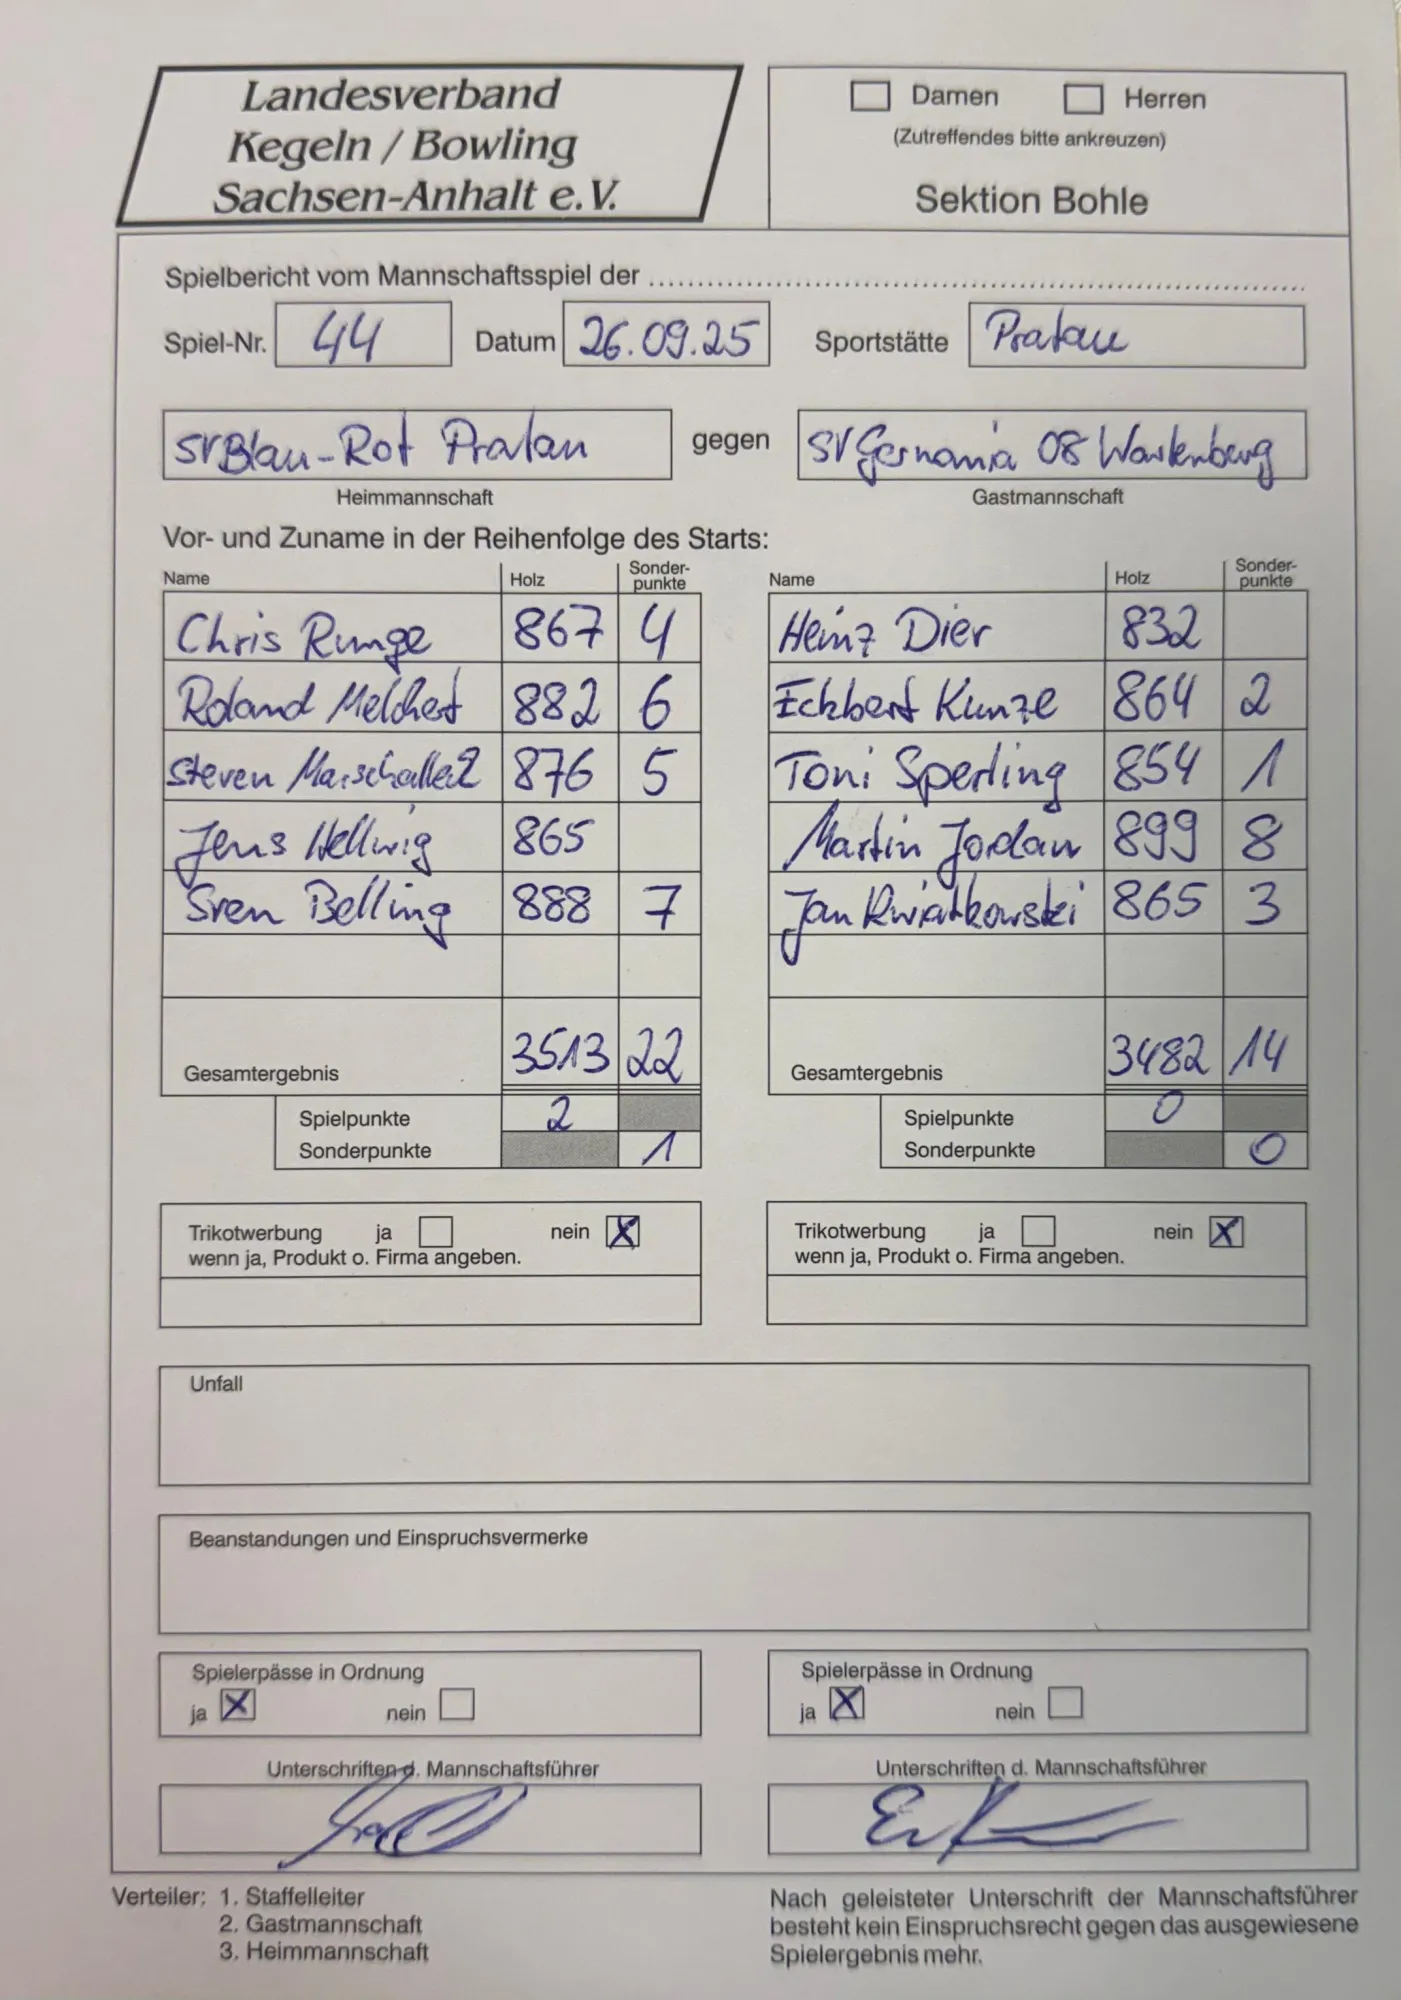 Landesverband
Kegeln / Bowling
Sachsen-Anhalt e.V.
Damen Herren
(Zutreffendes bitte ankreuzen)
Sektion Bohle
Spielbericht vom Mannschaftsspiel der ....................
Spiel-Nr. 44 Datum 26.09.25 Sportstätte Pratau
SV Blau-Rot Pratau gegen SV Germania 08 Wartenberg
Heimmannschaft Gastmannschaft
Vor- und Zuname in der Reihenfolge des Starts:
Name Holz Sonder-punkte Name Holz Sonder-punkte
Chris Runge 867 4 Heinz Dier 832
Roland Melchert 882 6 Eckbert Kunze 864 2
Steven 876 5 Toni Sperling 854 1
Jens Hellwig 865 Martin Jordan 899 8
Sven Belling 888 7 Jan Kwiatkowski 865 3
Gesamtergebnis 3513 22 Gesamtergebnis 3482 14
Spielpunkte 2 Spielpunkte 0
Sonderpunkte 1 Sonderpunkte 0
Trikotwerbung ja nein X Trikotwerbung ja nein X
wenn ja, Produkt o. Firma angeben. wenn ja, Produkt o. Firma angeben.
Unfall
Beanstandungen und Einspruchsvermerke
Spielerpässe in Ordnung Spielerpässe in Ordnung
ja X nein ja X nein
Unterschriften d. Mannschaftsführer Unterschriften d. Mannschaftsführer
Verteiler: 1. Staffelleiter
2. Gastmannschaft
3. Heimmannschaft
Nach geleisteter Unterschrift der Mannschaftsführer
besteht kein Einspruchsrecht gegen das ausgewiesene
Spielergebnis mehr.